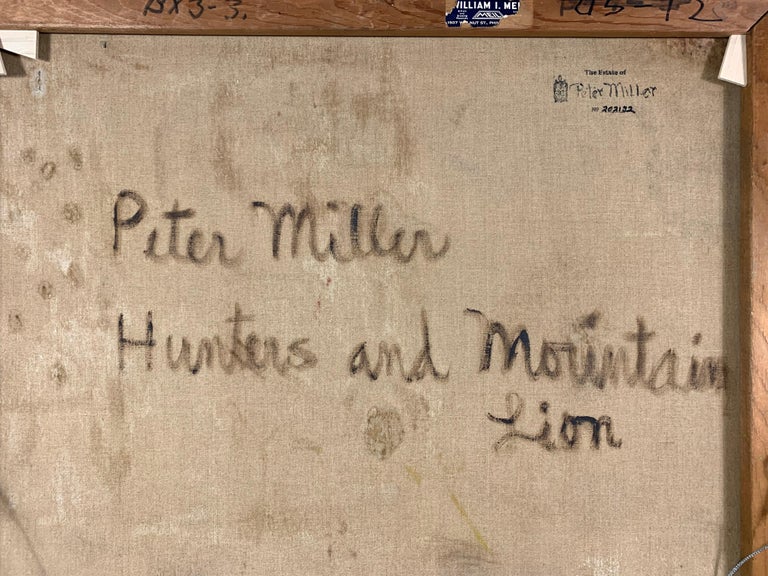 BX3-3.
WILLIAM I. ME
The Estate of
Peter Miller
Nº 202132
Peter Miller
Hunters and Mountain
Lion